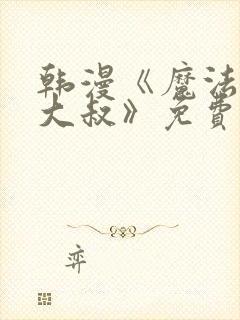 韩漫《魔法
大叔》免費
弈